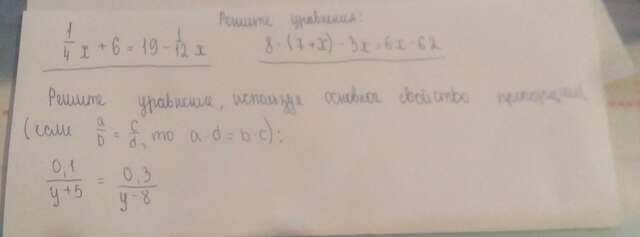 Решите уравнения:
1/4 x + 6 = 19 - 1/12 x
8 · (7+x) - 3x = 6x - 62
Решите уравнение, используя основное свойство пропорции
(если a/b = c/d, то a · d = b · c):
0,1/(y+5) = 0,3/(y-8)